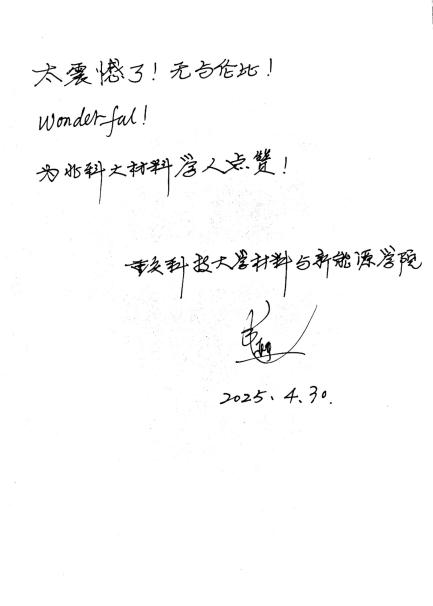 太震憾了！无与伦比！
Wonderful!
为北科大材料学人点赞！
重庆科技大学材料与新能源学院
2025.4.30.